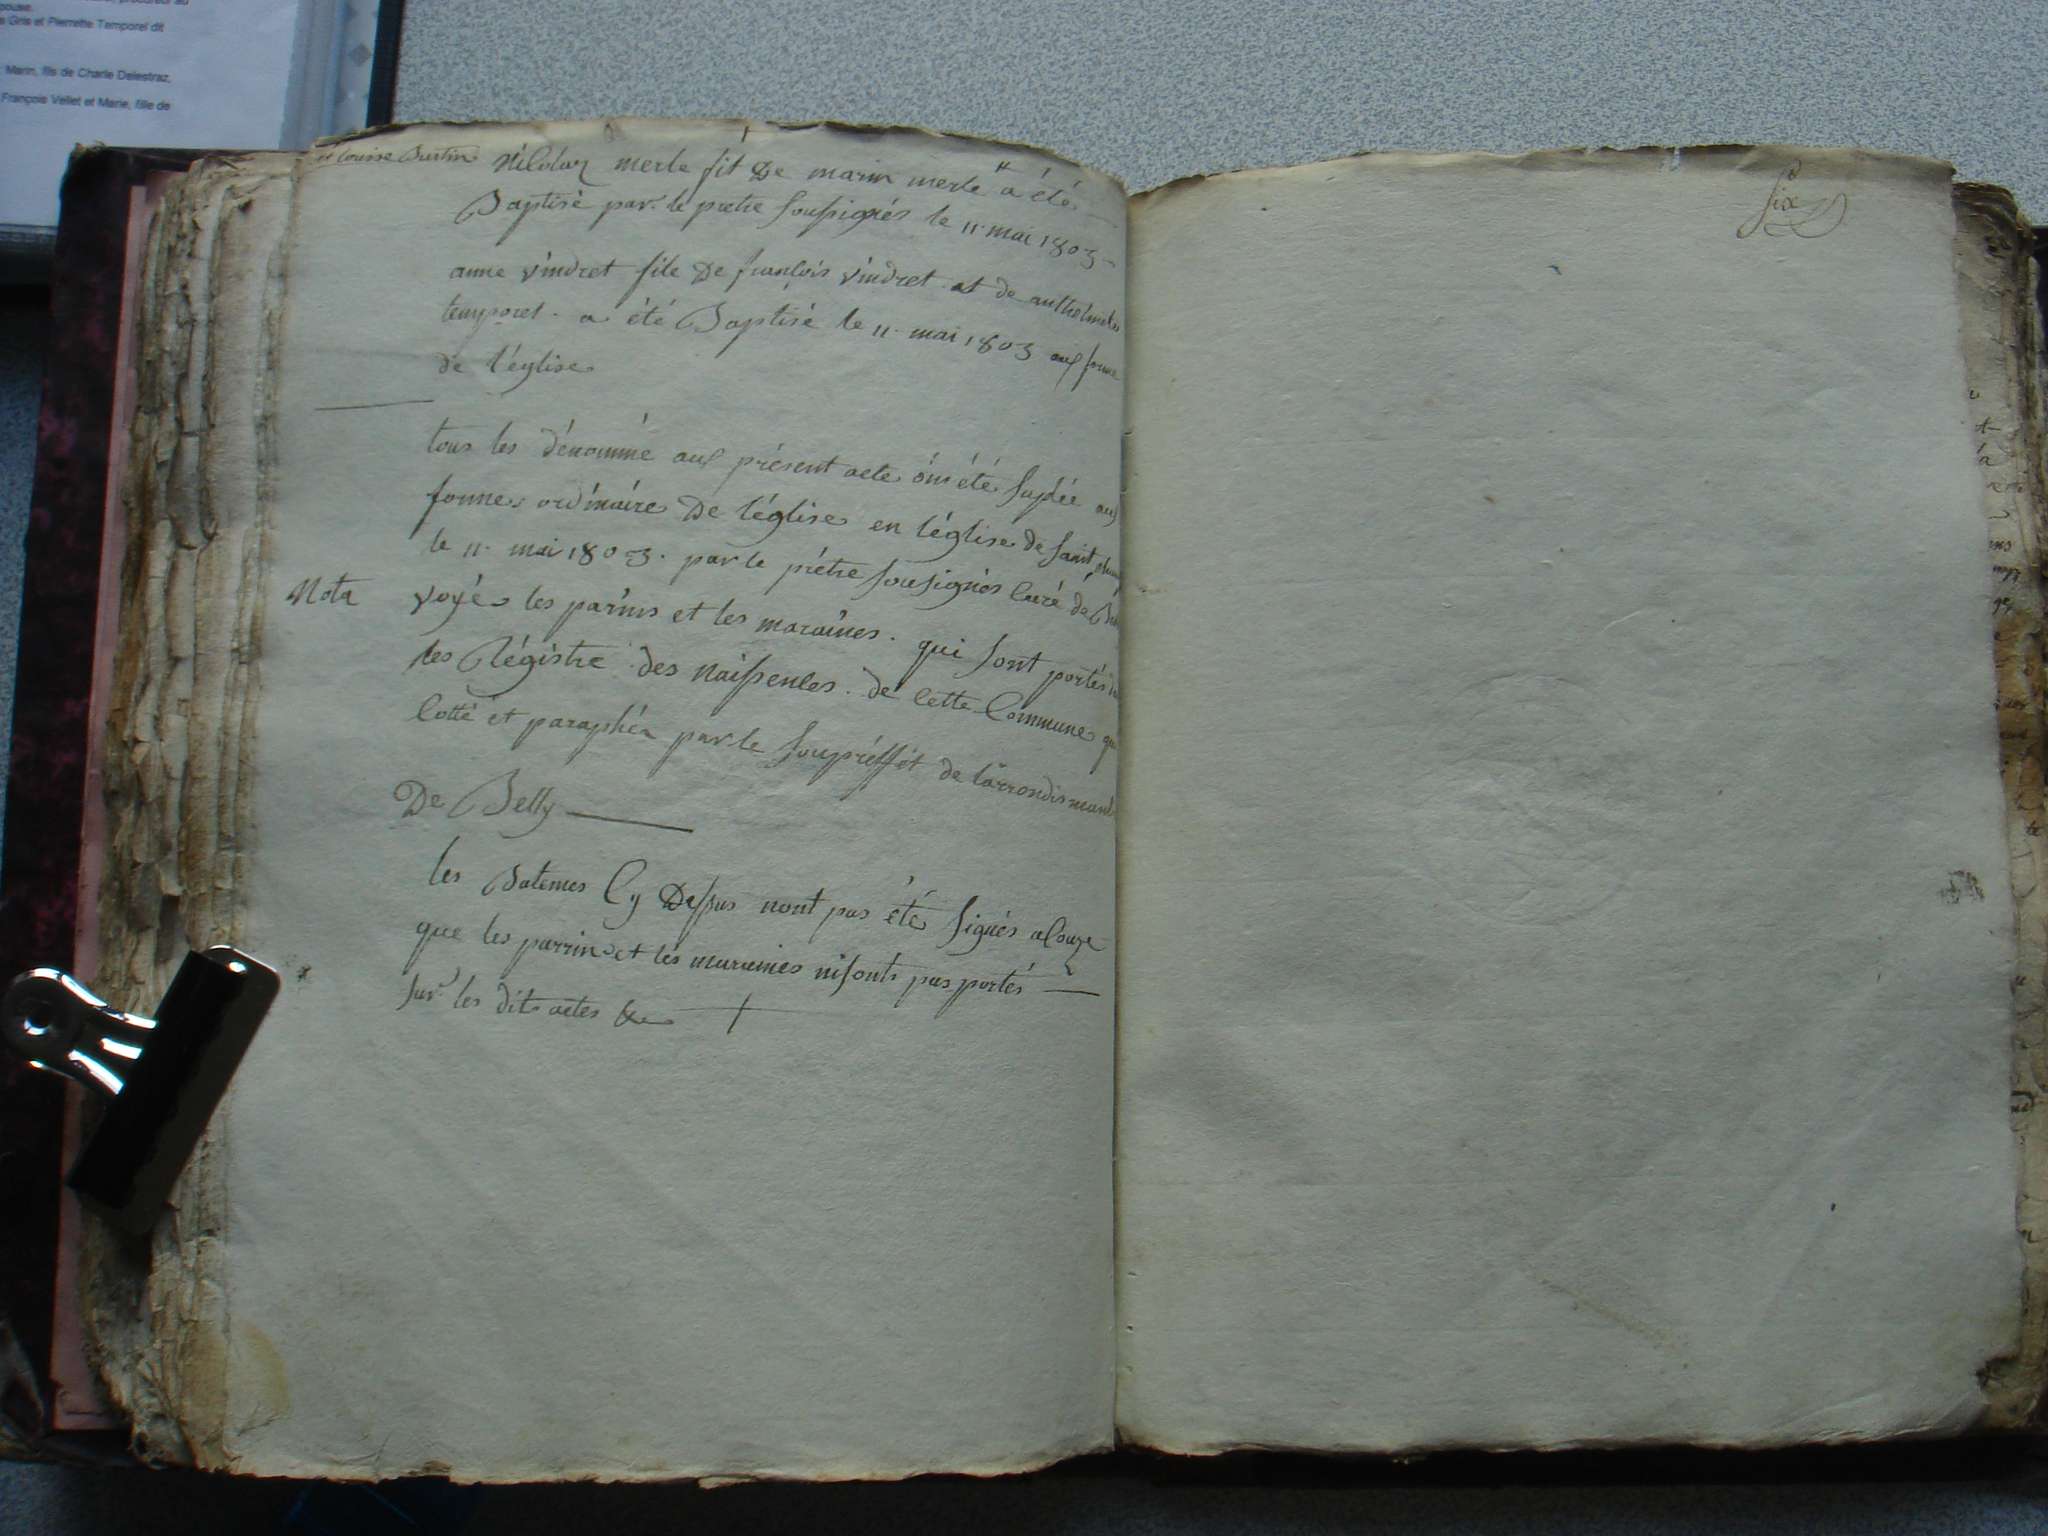 pouse.
Gris et Pierrette Temporel dit
Marin, fils de Charle Delestraz,
François Vellet et Marie, fille de
et Louise Burtin
Nicolas merle fit De marin merle " a été
Baptisé par le pretre soussignés le 11 mai 1803
anne vindret file De françois vindret et de anthelmete
temporel . a été Baptisé le 11 mai 1803 aux forme
de l'églises
tous les dénommé aux présent acte ónt été suplée aux
formes ordinaire De l'églises en l'églises de saint
le 11 mai 1803 . par le prétre sousignés Curé de
Nota
voyés les parins et les maraines . qui sont portés
les Régistre des naissences . de cette Commune
Cotté et paraphéz par le souprésfét de l'arrondismant
De Belly
les Batemes Cy Dessus nont pas été signés a Cauze
que les parrin et les maraines nisonts pas portés
sur les dits actes &c
six